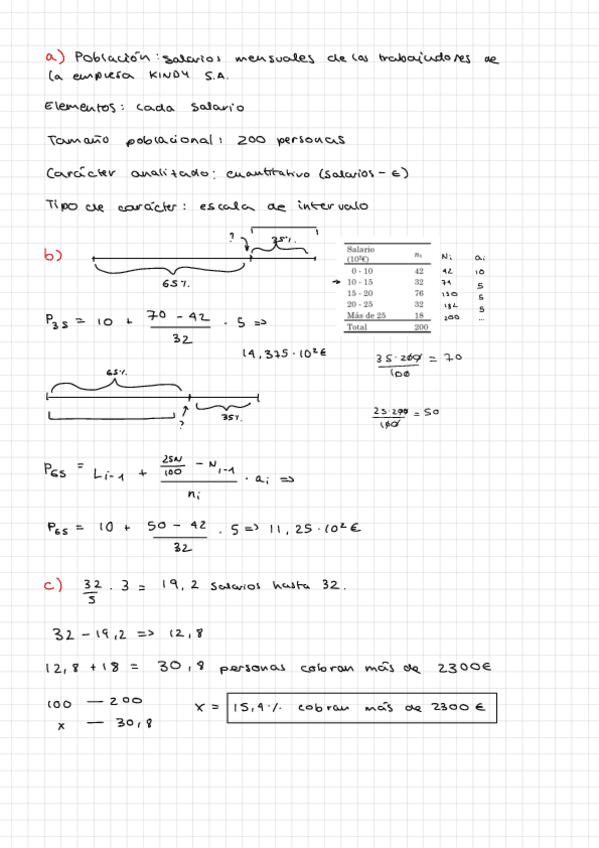 a) Población: salarios mensuales de los trabajadores de
la empresa KINDY S.A.
Elementos: cada salario
Tamaño poblacional: 200 personas
Carácter analitado: cuantitativo (salarios - €)
Tipo de carácter: escala de intervalo
b)
?
35%
65%
Salario (10²€) nᵢ Nᵢ aᵢ
0 - 10 42 42 10
→ 10 - 15 32 74 5
15 - 20 76 150 5
20 - 25 32 182 5
Más de 25 18 200 ...
Total 200
P₃₅ = 10 + (70 - 42)/32 · 5 =>
14,375 · 10² €
35·200/100 = 70
65%
?
35%
25·200/100 = 50
P₆₅ = Lᵢ₋₁ + (25N/100 - Nᵢ₋₁)/nᵢ · aᵢ =>
P₆₅ = 10 + (50 - 42)/32 · 5 => 11,25 · 10² €
c) 32/5 · 3 = 19,2 salarios hasta 32.
32 - 19,2 => 12,8
12,8 + 18 = 30,8 personas cobran más de 2300€
100 — 200
x — 30,8
x = 15,4% cobran más de 2300 €